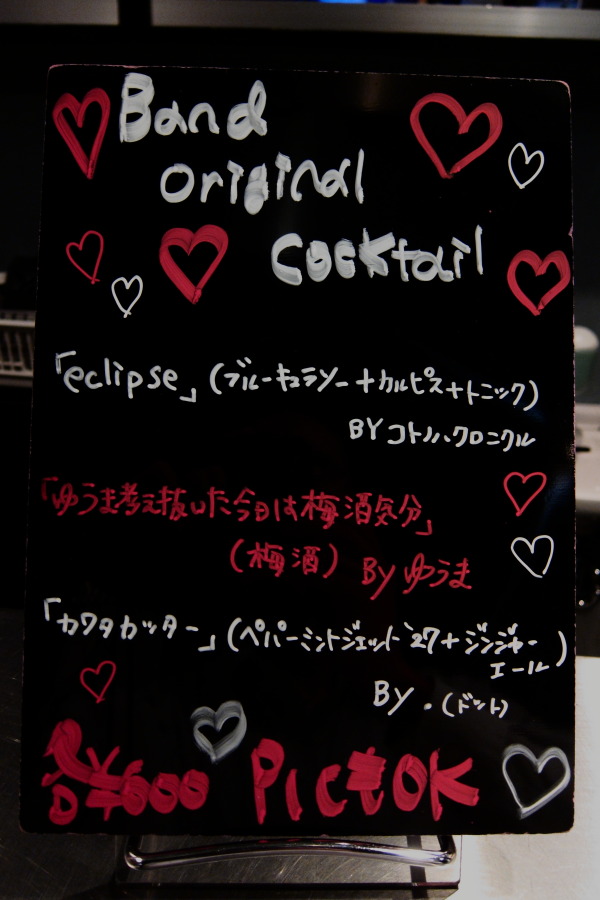 Band
original
cocktail
「eclipse」(ブルーキュラソー+カルピス+トニック)
BY コトノハクロニクル
「ゆうま考え抜いた今日は梅酒気分」
(梅酒) By ゆうま
「カワタカッター」(ペパーミントジェット27+ジンジャー
エール)
By .(ドット)
¥600 PicもOK